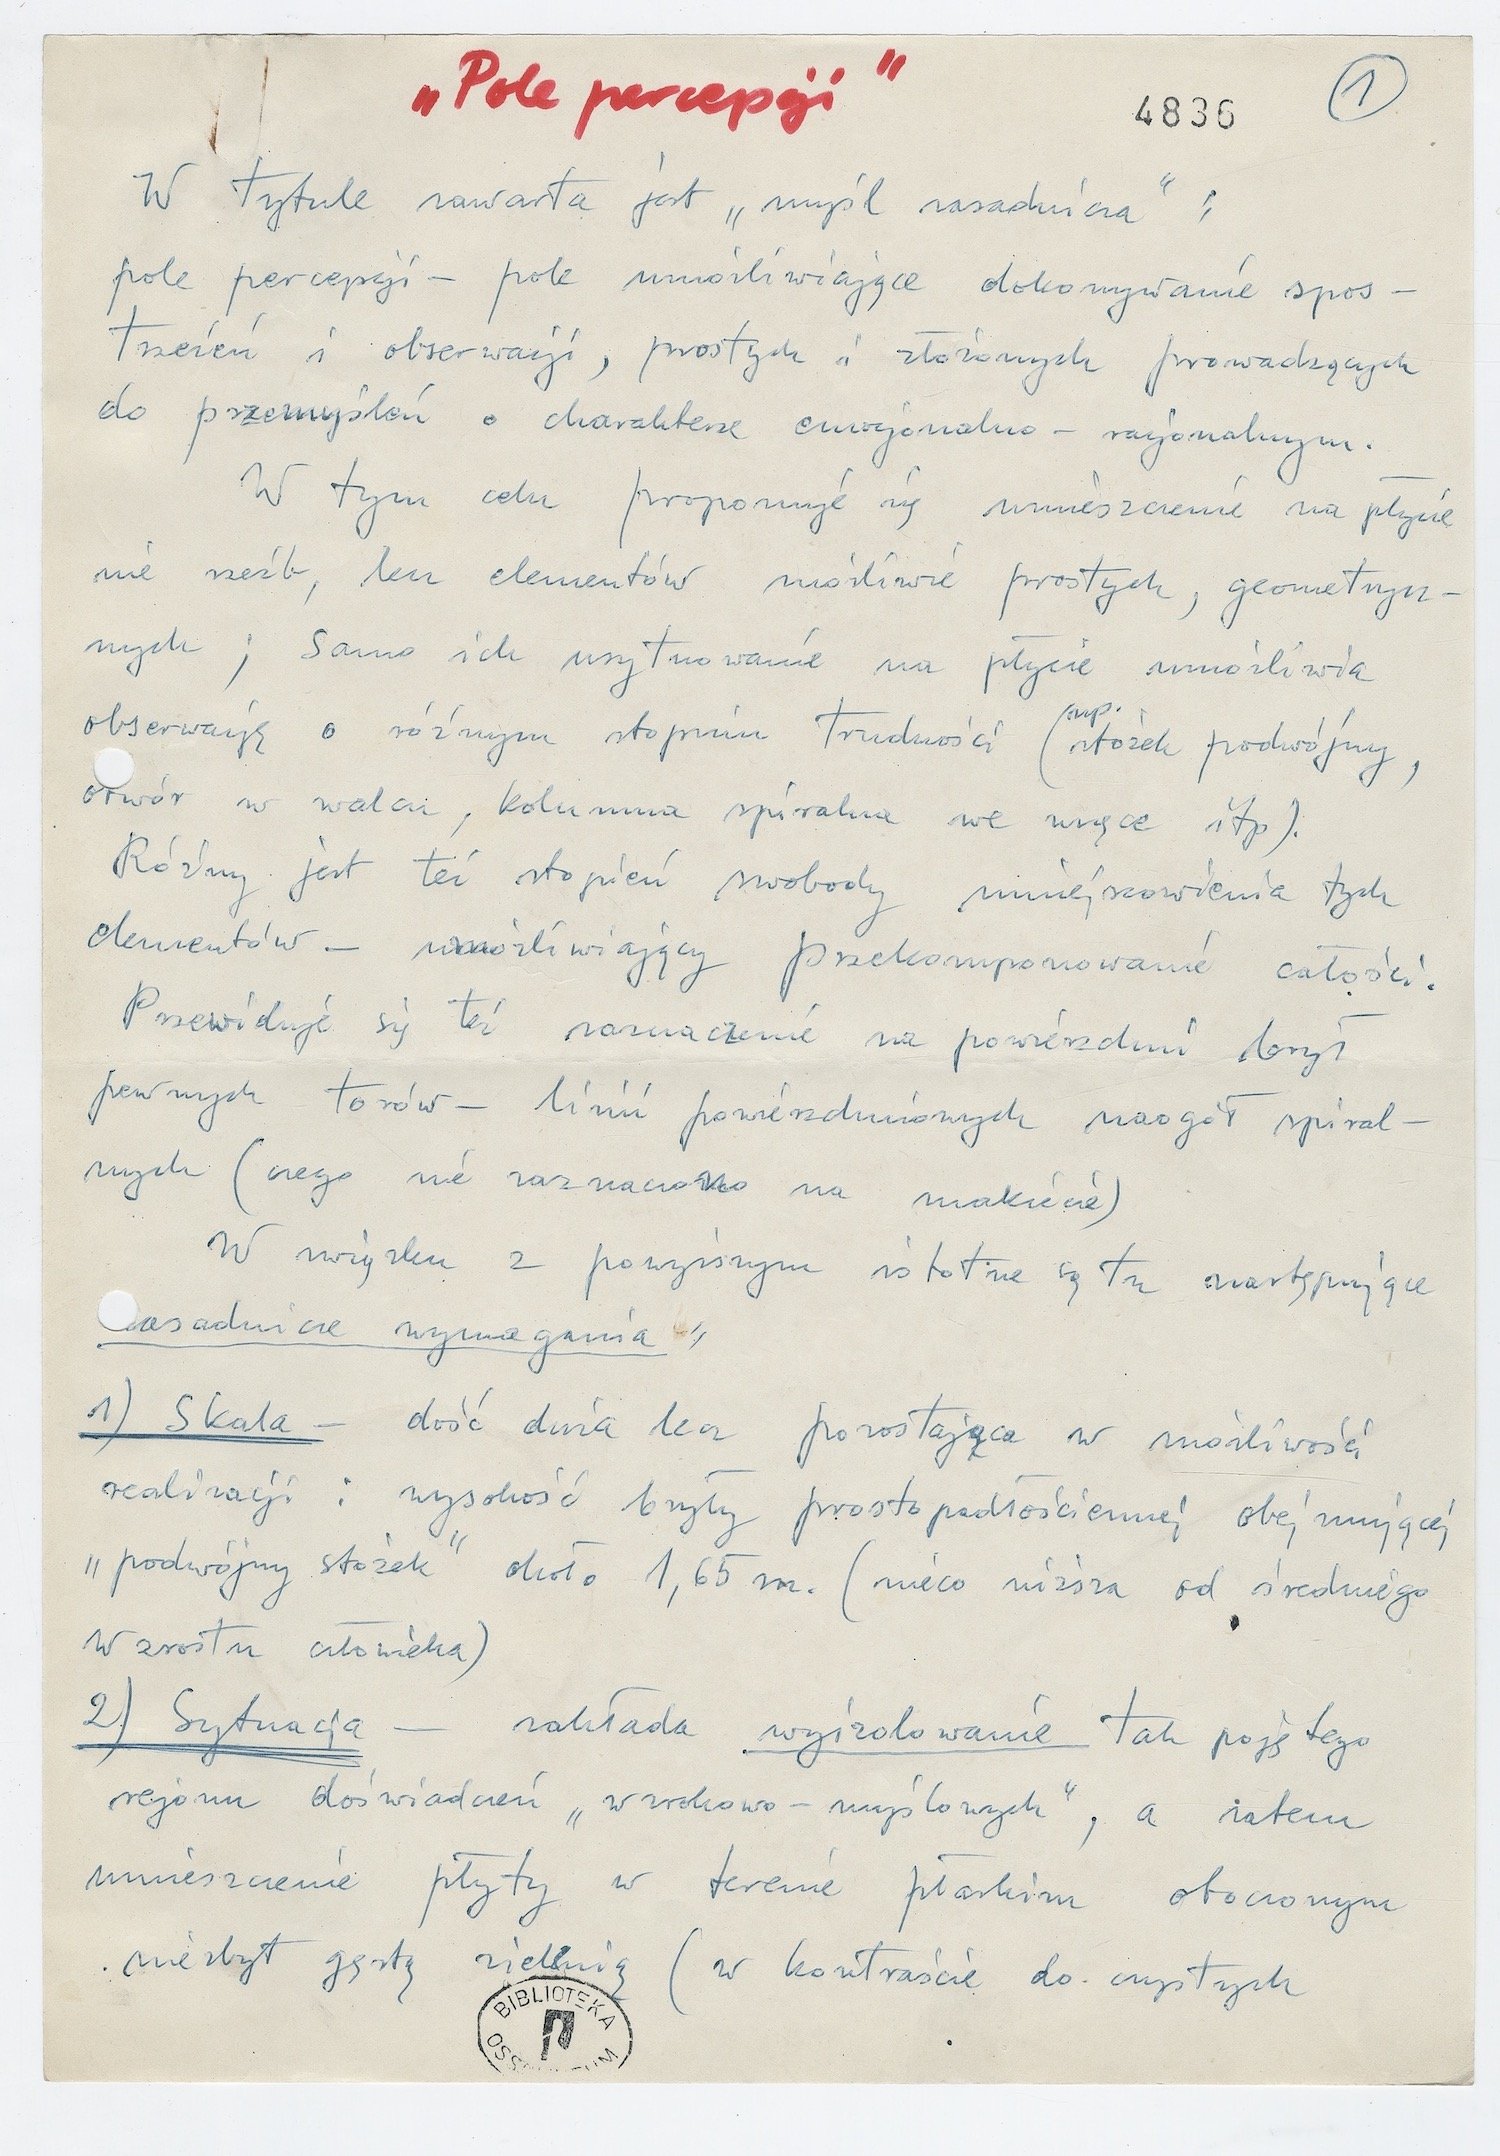 „Pole percepcji"
4836
1
W tytule zawarta jest „myśl zasadnicza" :
pole percepcji – pole umożliwiające dokonywanie spos-
trzeżeń i obserwacji, prostych i złożonych prowadzących
do przemyśleń o charakterze emocjonalno – racjonalnym.
W tym celu proponuje się umieszczenie na płycie
nie rzeźb, lecz elementów możliwie prostych, geometrycz-
nych ; Samo ich usytuowanie na płycie umożliwia
obserwację o różnym stopniu trudności (np. stożek podwójny,
otwór w walcu, kolumna spiralna we wnęce itp).
Różny jest też stopień swobody umiejscowienia tych
elementów – umożliwiający przekomponowanie całości.
Przewiduje się też zaznaczenie na powierzchni brył
pewnych torów – linii powierzchniowych naogół spiral-
nych (czego nie zaznaczono na makiecie)
W związku z powyższym istotne są tu następujące
zasadnicze wymagania "
1) Skala – dość duża lecz pozostająca w możliwości
realizacji : wysokość bryły prostopadłościennej obejmującej
„podwójny stożek" około 1,65 m. (nieco niższa od średniego
wzrostu człowieka)
2) Sytuacja – zakłada wyizolowanie tak pojętego
rejonu doświadczeń „wzrokowo – myślowych", a zatem
umieszczenie płyty w terenie płaskim otoczonym
niezbyt gęstą zielenią (w kontraście do czystych
BIBLIOTEKA
OSSOLINEUM